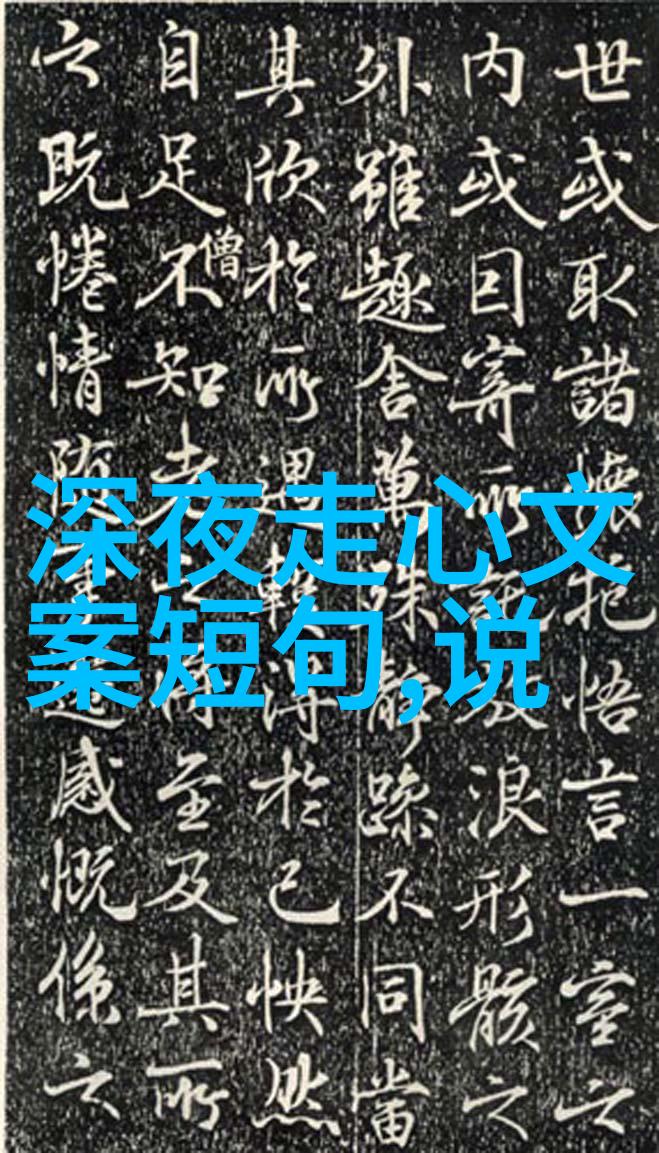 世或取諸懷抱悟言一室之
内或因寄所託放浪形骸之
外雖趣舍萬殊静躁不同當
其欣於所遇暫得於己怏然
僧
自足不知老之將至及其所
之既惓情隨事遷感慨係之
深夜走心文
案短句,说